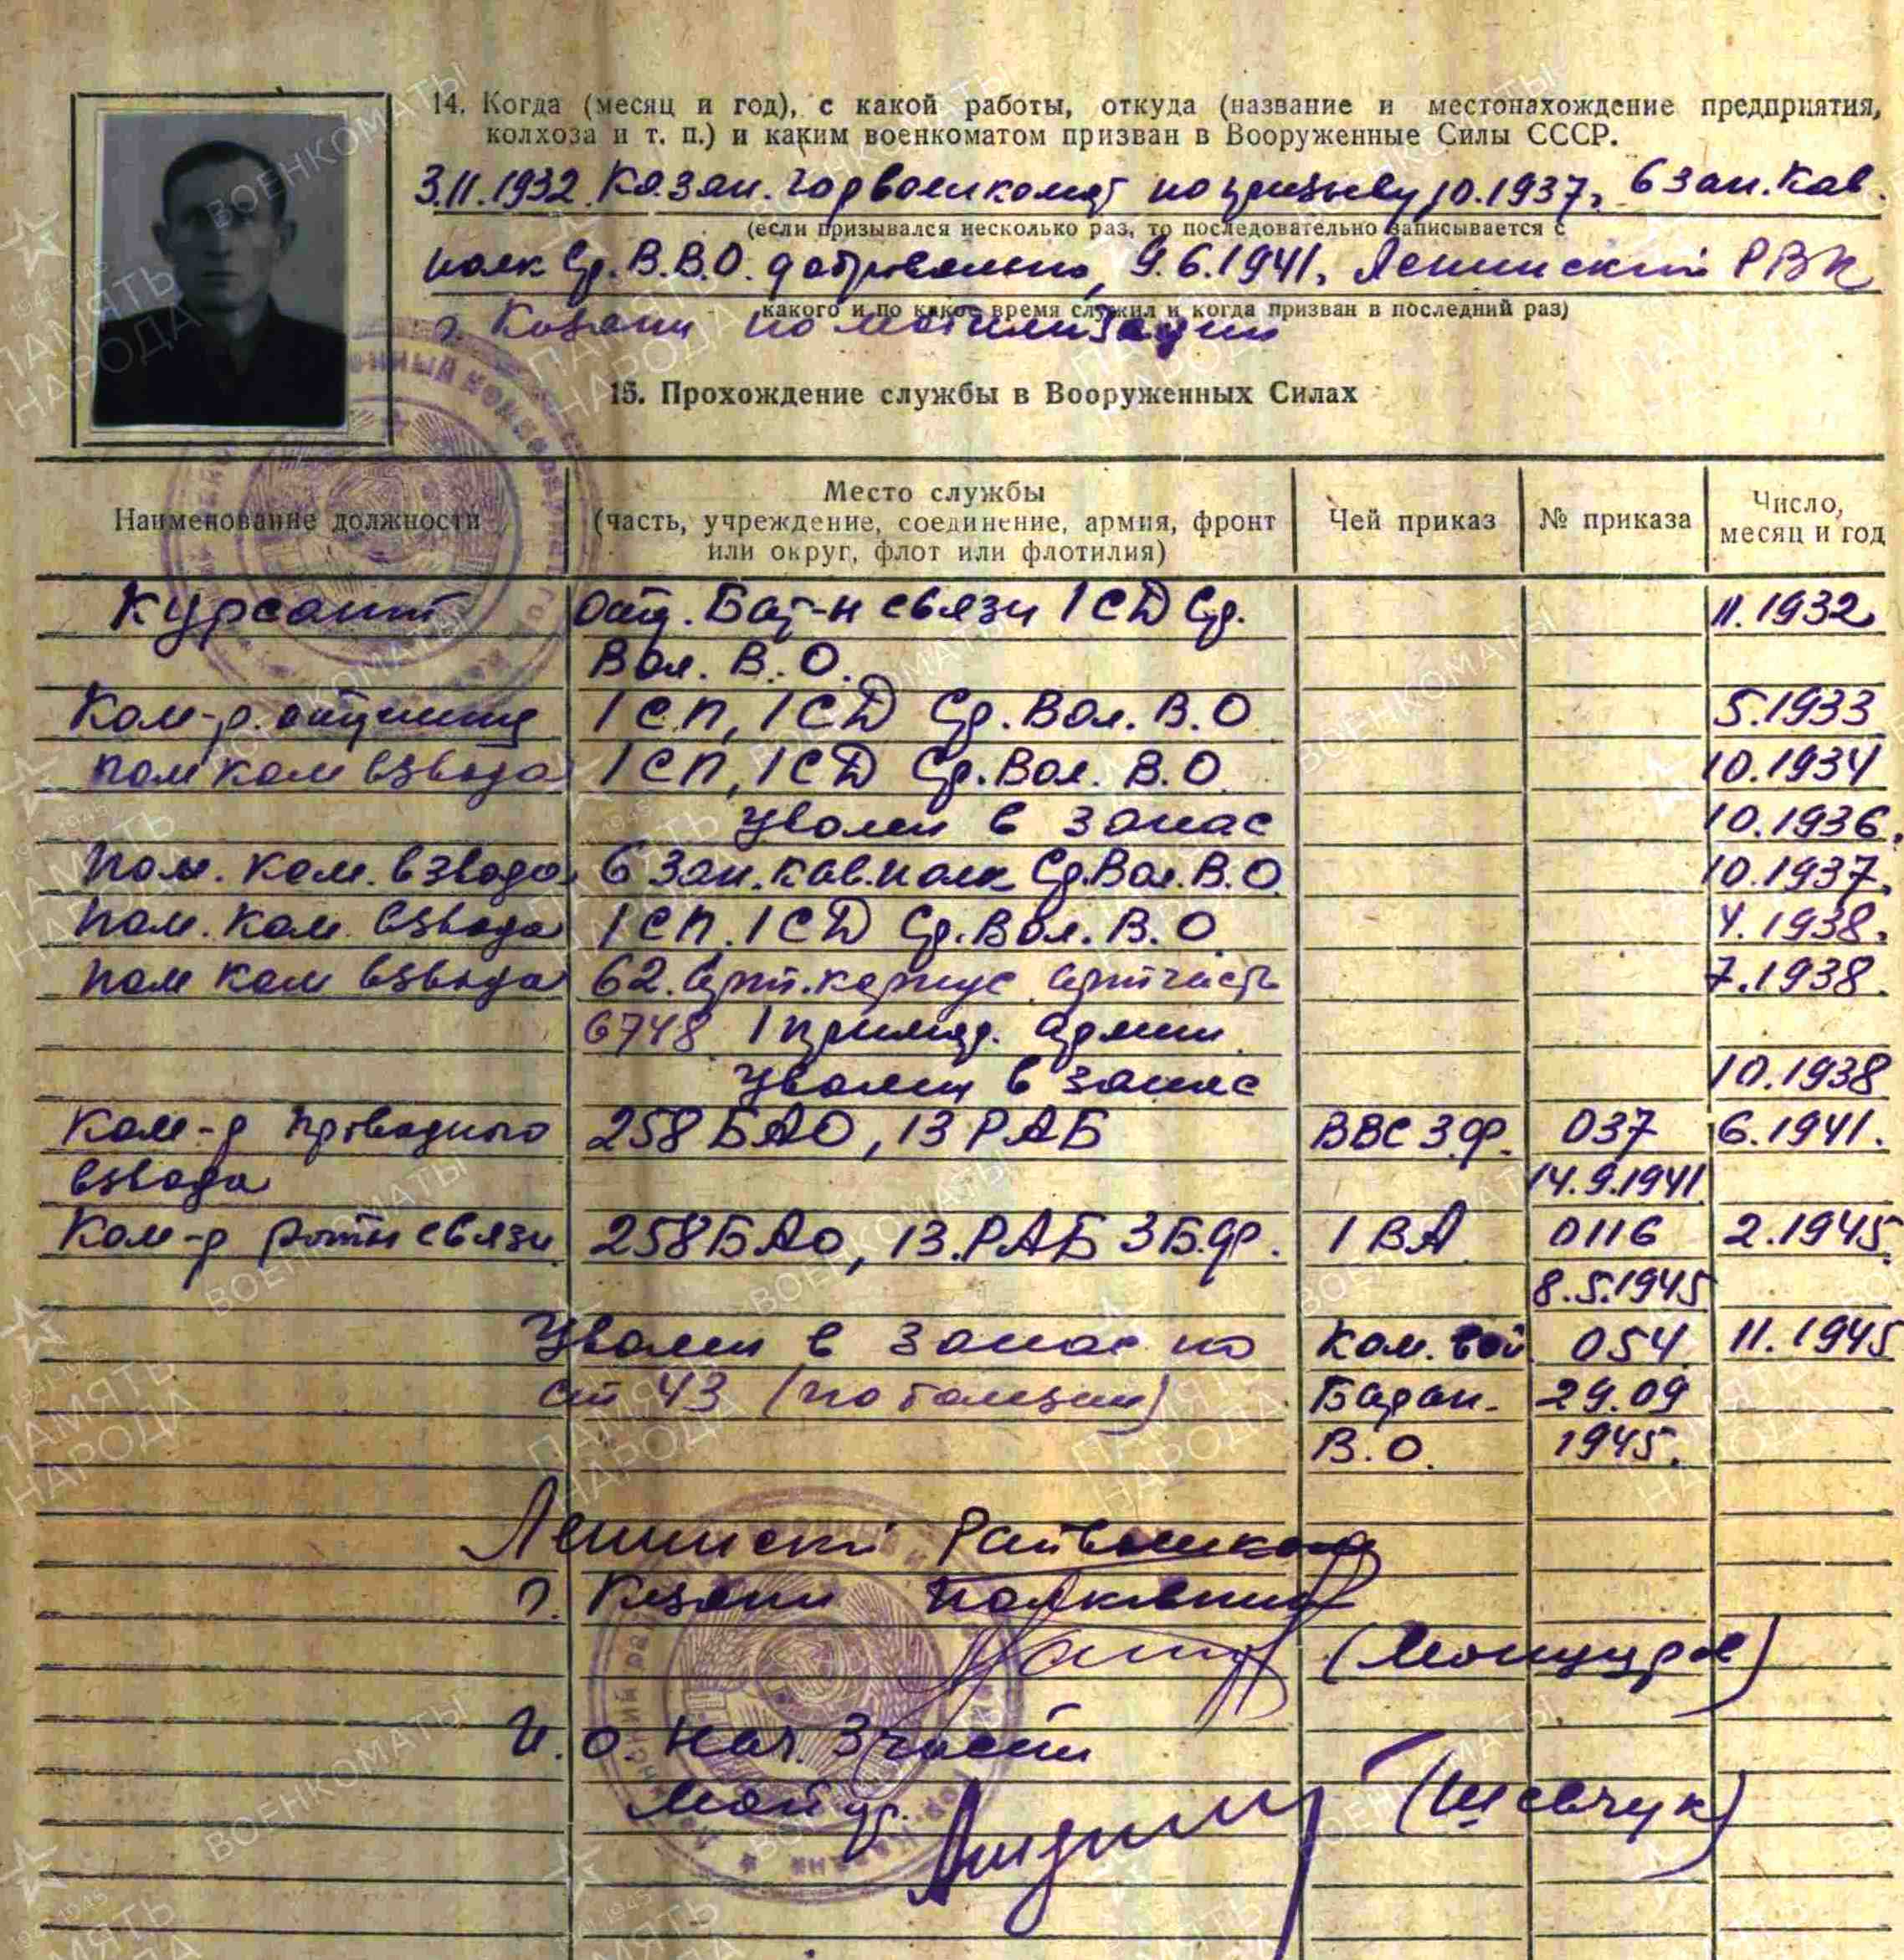 14. Когда (месяц и год), с какой работы, откуда (название и местонахождение предприятия,
колхоза и т. п.) и каким военкоматом призван в Вооруженные Силы СССР.
3.11.1932. Казан. горвоенкомат по призыву, 10.1937, 6 зап. кав.
(если призывался несколько раз, то последовательно записывается с
полк Ср. В.В.О. добровольно, 9.6.1941, Ленинский РВК
какого и по какое время служил и когда призван в последний раз)
г. Казани по мобилизации
15. Прохождение службы в Вооруженных Силах
Наименование должности Место службы (часть, учреждение, соединение, армия, фронт или округ, флот или флотилия) Чей приказ № приказа Число, месяц и год
Курсант Отд. Бат-н связи 1 СД Ср. 11.1932
Вол. В. О.
Ком-р. отделения 1 СП, 1 СД Ср. Вол. В. О 5.1933
пом ком взвода 1 СП, 1 СД Ср. Вол. В. О 10.1934
Уволен в запас 10.1936.
Пом. ком. взвода 6 Зап. кав. полк Ср. Вол. В. О 10.1937.
Пом. ком. взвода 1 СП. 1 СД Ср. Вол. В. О 4.1938.
пом ком взвода 62. арт. корпус артчасть 7.1938.
6748 1 армии
Уволен в запас 10.1938
Ком-р проводного 258 БАО, 13 РАБ ВВС З.ф. 037 6.1941.
взвода 14.9.1941
Ком-р роты связи 258 БАО, 13. РАБ 3 Б.ф. 1 ВА 0116 2.1945.
8.5.1945
Уволен в запас по Ком. вой 054 11.1945
ст 43 (по болезни) Баран. 29.09
В. О. 1945.
Ленинский Райвоенком
г. Казани полковник
И. о. нач. 3 части
Майор. (Шевчук)
ПАМЯТЬ НАРОДА
ВОЕНКОМАТЫ
1941-1945